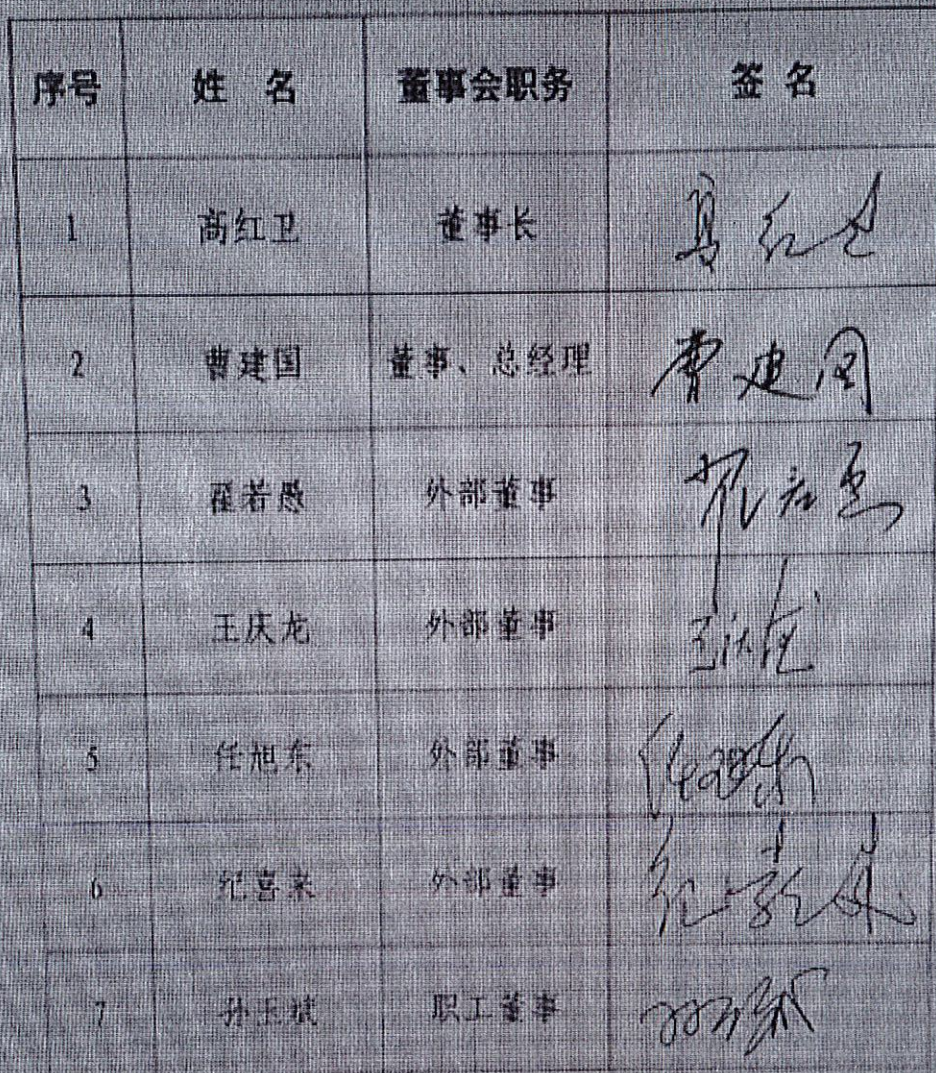 序号 姓 名 董事会职务 签 名
1 高红卫 董事长 高红卫
2 曹建国 董事、总经理 曹建国
3 翟若愚 外部董事 翟若愚
4 王庆龙 外部董事 王庆龙
5 任旭东 外部董事 任旭东
6 纪喜来 外部董事
7 孙玉斌 职工董事